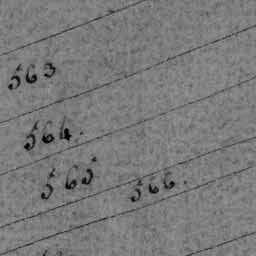 563
564.
565
566.